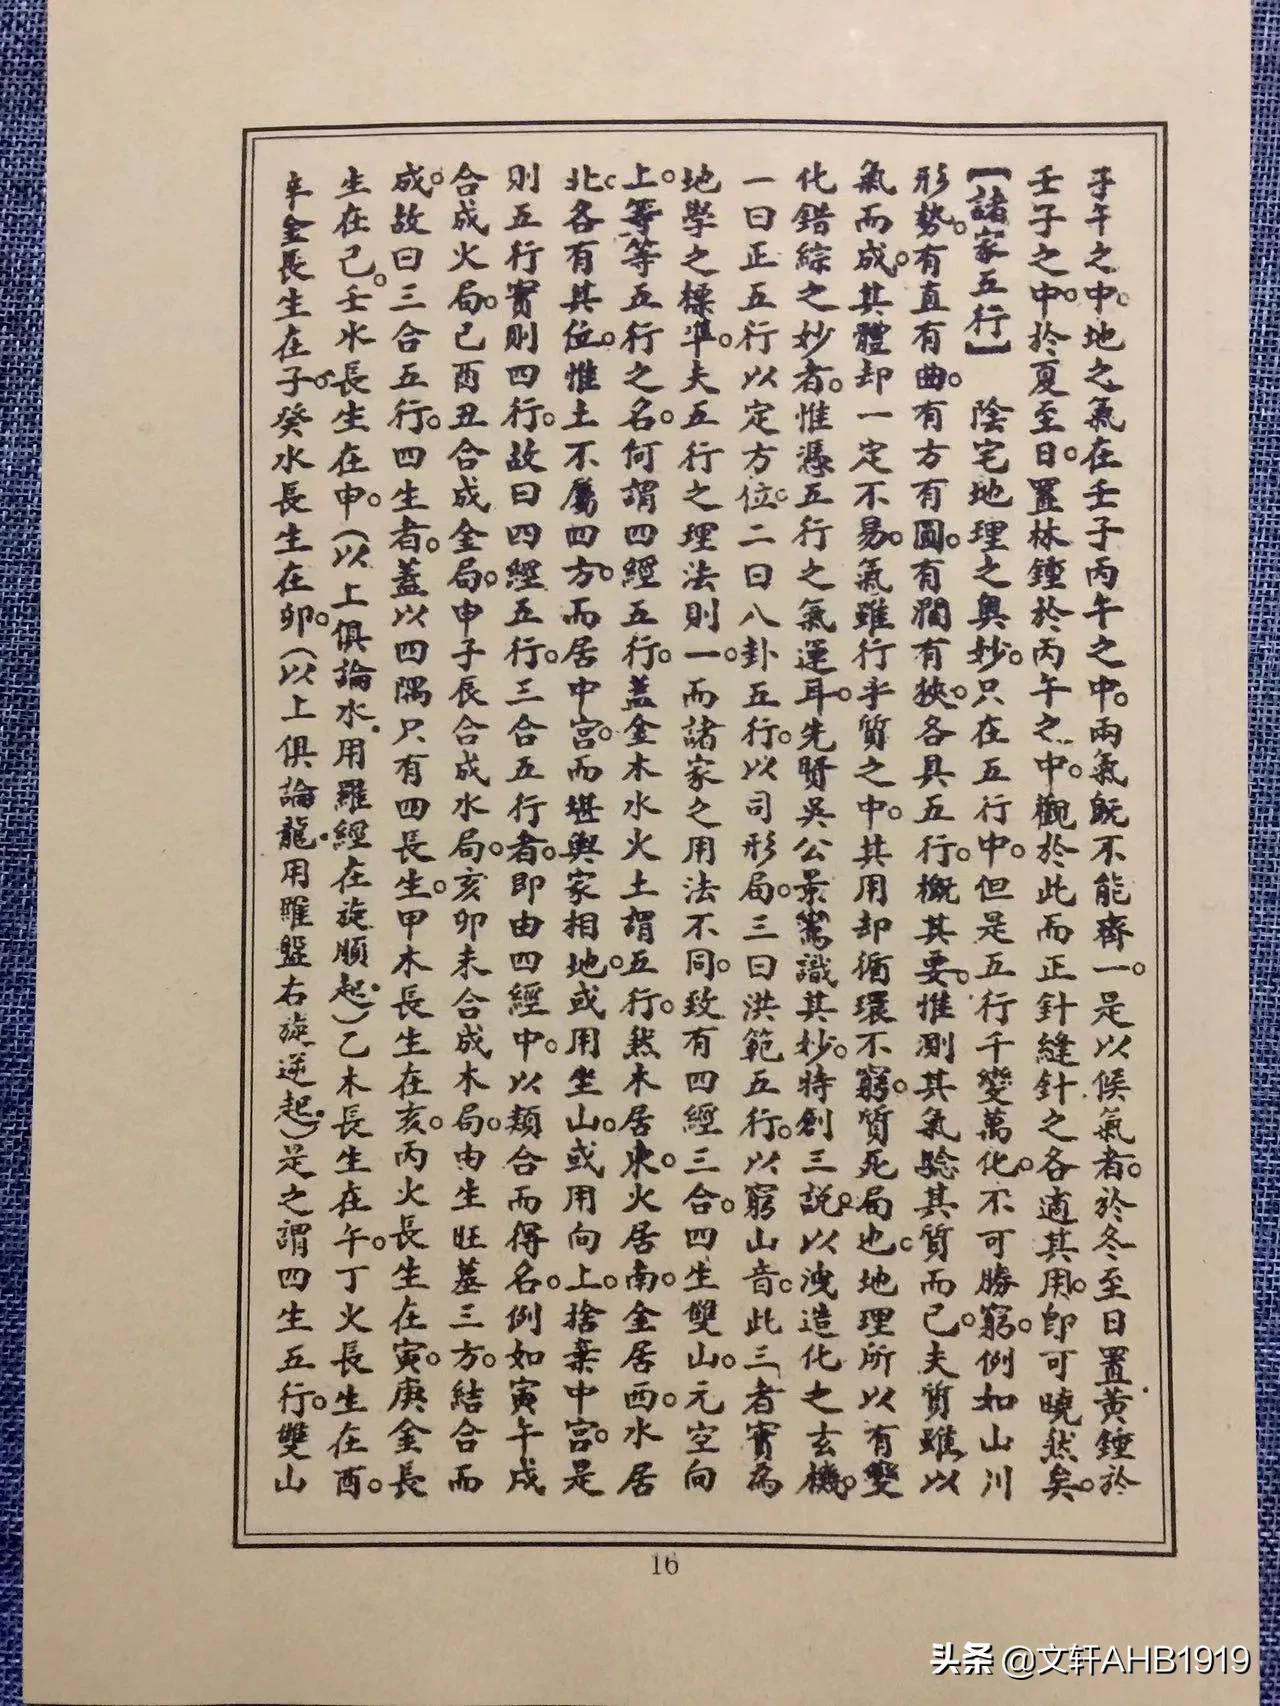 子午之中。地之氣在壬子丙午之中。兩氣既不能齊一。是以候氣者。於冬至日置黃鍾於
壬子之中。於夏至日。置林鍾於丙午之中。觀於此而正針縫針之各適其用。即可曉然矣。
【諸家五行】 陰宅地理之奧妙。只在五行中。但是五行千變萬化。不可勝窮。例如山川
形勢。有直有曲。有方有圓。有濶有狹。各具五行。概其要。惟測其氣驗其質而已。夫質雖以
氣而成。其體却一定不易。氣雖行乎質之中。其用却循環不窮。質死局也。地理所以有變
化錯綜之妙者。惟憑五行之氣運耳。先賢吳公景鸞識其妙。特創三說。以洩造化之玄機。
一曰正五行以定方位。二曰八卦五行。以司形局。三曰洪範五行。以窮山音。此三者實為
地學之標準。夫五行之理法則一。而諸家之用法不同。致有四經三合。四生雙山。元空向
上。等等五行之名。何謂四經五行。蓋金木水火土謂五行。然木居東。火居南。金居西。水居
北。各有其位。惟土不屬四方。而居中宮。而堪輿家相地。或用坐山。或用向上。捨棄中宮。是
則五行實則四行。故曰四經五行。三合五行者。即由四經中。以類合而得名。例如寅午戌
合成火局。巳酉丑合成金局。申子辰合成水局。亥卯未合成木局。由生旺墓三方。結合而
成。故曰三合五行。四生者。蓋以四隅只有四長生。甲木長生在亥。丙火長生在寅。庚金長
生在己。壬水長生在申。(以上俱論水。用羅經在旋順起。)乙木長生在午。丁火長生在酉。
辛金長生在子。癸水長生在卯。(以上俱論龍。用羅盤右旋逆起。)是之謂四生五行。雙山
16
头条 @文轩AHB1919